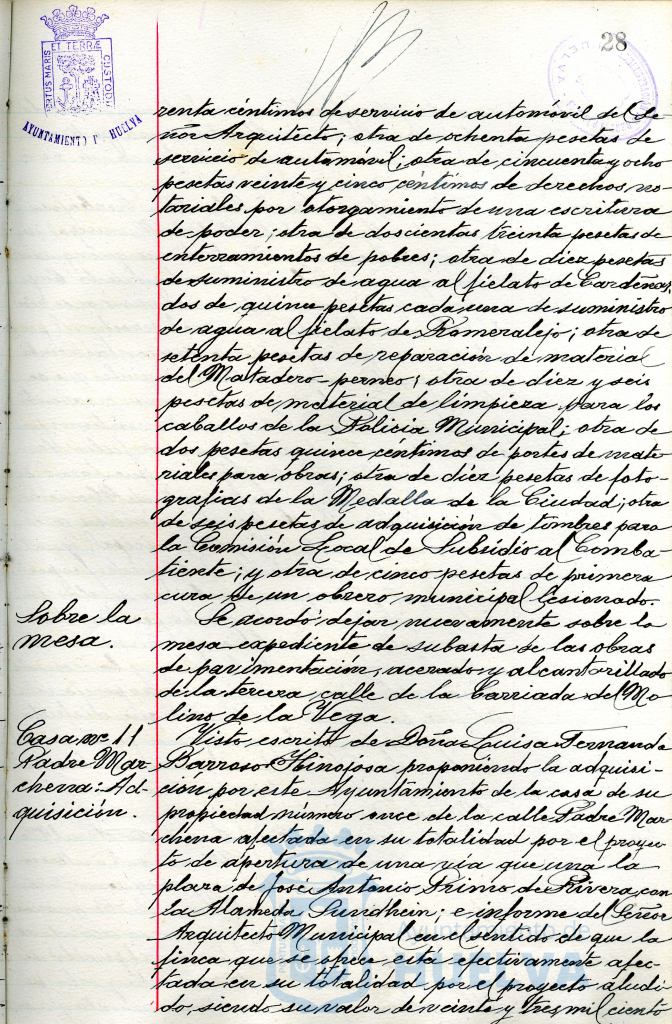 28
PORTUS MARIS ET TERRÆ CUSTODIA
AYUNTAMIENTO DE HUELVA
renta céntimos de servicio de automóvil del Se-
ñor Arquitecto; otra de ochenta pesetas de
servicio de automóvil; otra de cincuenta y ocho
pesetas veinte y cinco céntimos de derechos no-
tariales por otorgamiento de una escritura
de poder; otra de doscientas treinta pesetas de
enterramientos de pobres; otra de diez pesetas
de suministro de agua al fielato de Cardeñas,
dos de quince pesetas cada una de suministro
de agua al fielato de Romeralejo; otra de
setenta pesetas de reparación de material
del Matadero-perneo; otra de diez y seis
pesetas de material de limpieza para los
caballos de la Policia Municipal; otra de
dos pesetas quince céntimos de portes de mate-
riales para obras; otra de diez pesetas de foto-
grafias de la Medalla de la Ciudad; otra
de seis pesetas de adquisición de timbres para
la Comisión Local de Subsidio al Comba-
tiente; y otra de cinco pesetas de primera
cura de un obrero municipal lesionado.
Sobre la
mesa.
Se acordó dejar nuevamente sobre la
mesa expediente de subasta de las obras
de pavimentación, acerado y alcantarillado
de la tercera calle de la barriada del Mo-
lino de la Vega.
Casa nº 11
Padre Mar-
chena: Ad-
quisición.
Visto escrito de Doña Luisa Fernanda
Barroso Hinojosa proponiendo la adquisi-
ción por este Ayuntamiento de la casa de su
propiedad número once de la calle Padre Mar-
chena afectada en su totalidad por el proyec-
to de apertura de una via que una la
plaza de José Antonio Primo de Rivera con
la Alameda Sundheim; e informe del Señor
Arquitecto Municipal en el sentido de que la
finca que se ofrece está efectivamente afec-
tada en su totalidad por el proyecto aludi-
do, siendo su valor de veinte y tres mil ciento
Ayuntamiento de
HUELVA